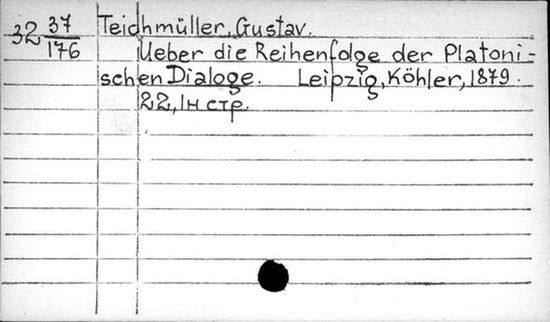 32 37/176 Teichmüller, Gustav.
Ueber die Reihenfolge der Platoni-
schen Dialoge. Leipzig, Köhler, 1879.
22, 1н стр.